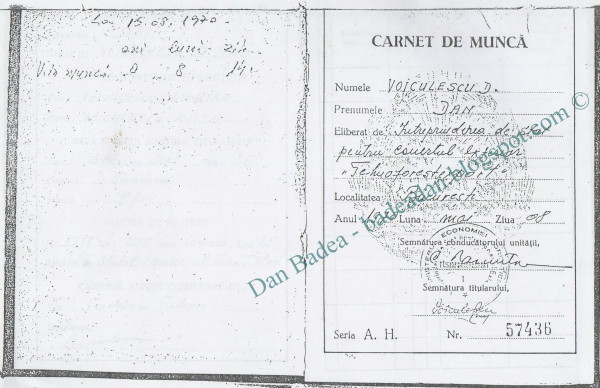 La 15.08.1970.
ani luni zile
Vim muncă 0 8 14
CARNET DE MUNCĂ
Numele VOICULESCU D.
Prenumele DAN
Eliberat de Întreprinderea de stat
pentru comerțul exterior
"Tehnoforestexport"
Localitatea București
Anul Luna mai Ziua 08
Semnătura conducătorului unității,
ECONOMIEI
Semnătura titularului,
Voiculescu
Seria A. H. Nr. 57436
Dan Badea - badeadan.blogspot.com ©